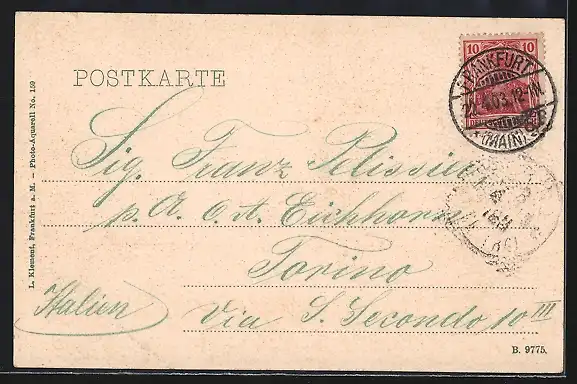 POSTKARTE
10 10
FRANKFURT
4.03. 12-1N.
* (MAIN)
Sig. Franz Pelissier
p. A. C. A. Eichhorn
Torino
Italien
Via S. Secondo 10 III
L. Klement, Frankfurt a. M. – Photo-Aquarell No. 159
B. 9775.